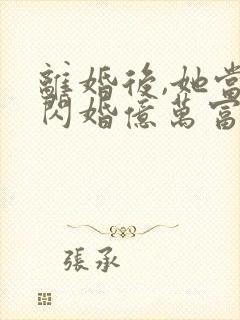 離婚後,她當
閃婚億萬富
張承